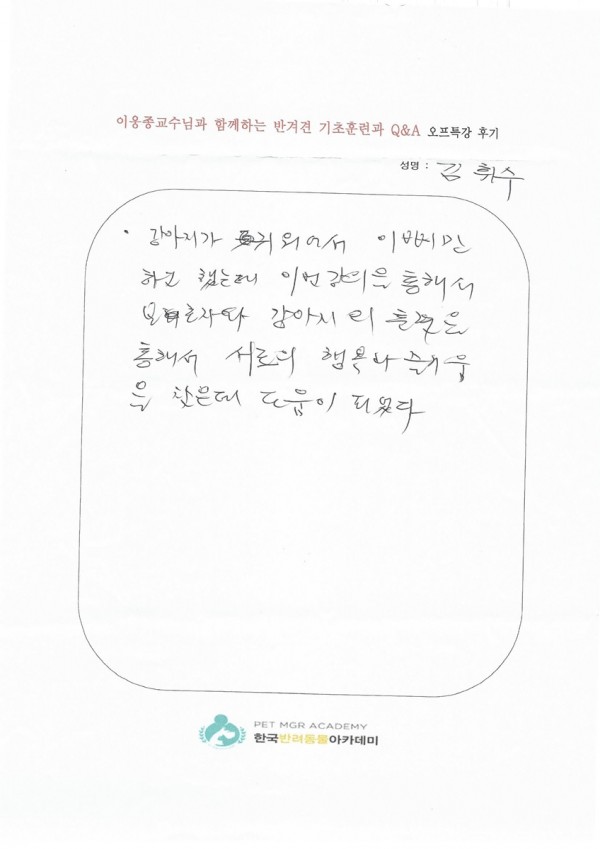 이웅종교수님과 함께하는 반겨견 기초훈련과 Q&A 오프특강 후기
성명 : 김휘수
· 강아지가 귀여어서 이뻐만
하고 했는데 이번강의을 통해서
보호자와 강아지의 훈련은
통해서 서로의 행복과 즐거움
을 찾은데 도움이 되었다
PET MGR ACADEMY
한국반려동물아카데미